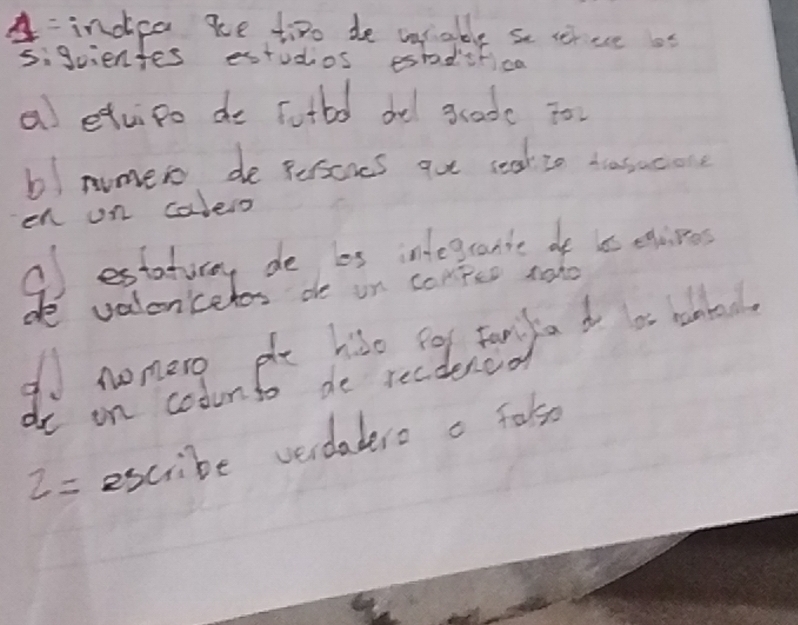 1 = indica que tipo de variable se refiere los
siguientes estudios estadistica
a) equipo de futbol del grade
b) numero de Persones que realizo
en un cadero
c) estatura de los integrante de los equipos
de valoncetos de un
d) nomero de hiso por familia de los
de un codunto de recidencial
2 = escribe verdadero o falso